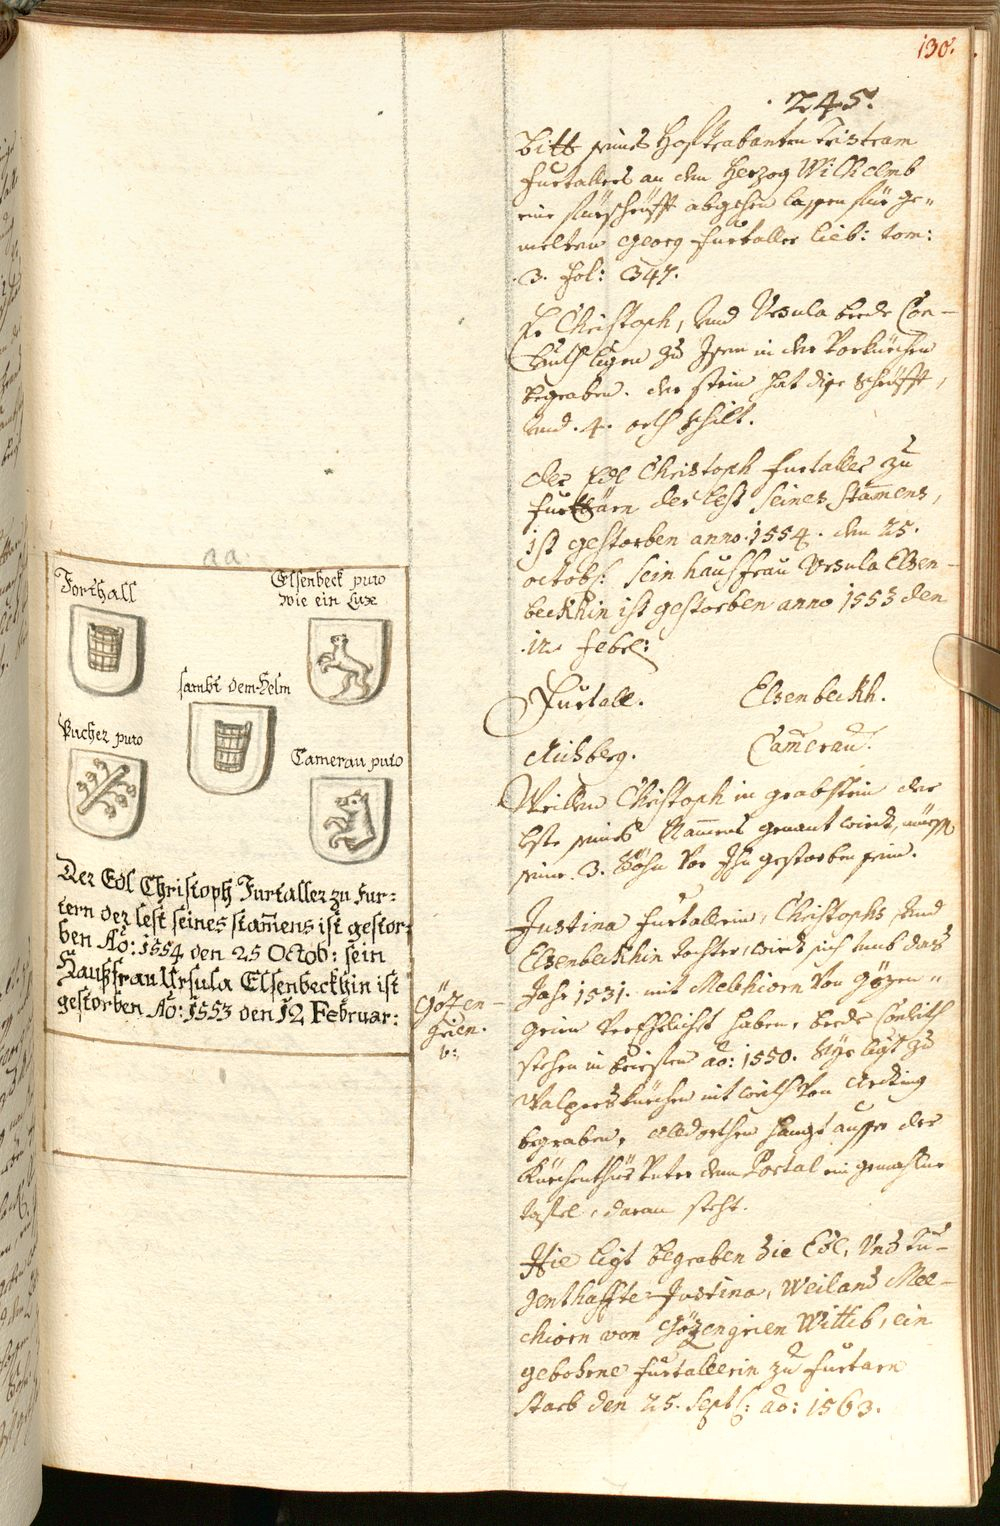 130.
245.
Bitt seines Hoftrabanten Tristram
Furtallers an den Herzog Wilhelmb
eine fürschrifft abgehen lassen für ge„
melten Georg Furtaller lieb: tom:
3. fol: 347.
Christoph, und Ursula beede Con-
ligen zu Isen in der Vorkürchen
begraben. der stein hat dise schrifft,
und .4. orth schilt.
der Edl Christoph Furtaller zu
Furtärn der lest seines stam̄ens,
ist gestorben anno .1554. den 25.
octob: sein hausfrau Ursula Elsen-
beckhin ist gestorben anno 1553 den
.12. febr:
Furtall. Elsenbeckh.
Aichberg. Camerau.
Weillen Christoph in grabstein der
leste seines Nam̄ens genant wirdt, müessen
seine .3. Söhn vor Ihm gestorben sein.
Justina Furtallerin, Christophs, und
Elsenbeckhin tochter, wirdt sich umb das
Jahr 1531. mit Melchiorn von Gözen„
grien verehlicht haben, beede
stehen in ao: 1550. Sye ligt zu
Walperskürchen mit
begraben, alldorthen hangt ausser der
Kürchenthür unter dem Portal ein gemahlne
tafel, daran steht.
Hie ligt begraben die Edl, und Tu-
genthaffte Justina, Weiland Mel-
chiorn von Gözengrien Wittib, ein
gebohrne Furtallerin zu Furtarn
starb den 25. Sept: ao: 1563.
Götzen-
grien.
aa.
Forthall
Elsenbeck puto
wie ein Lux
sambt dem Helm
Pucher puto
Camerau puto
Der Edl Christoph Furtaller zu Fur=
tern der lest seines stam̄ens ist gestor=
ben Ao: 1554 den 25 Octob: sein
Haußfrau Ursula Elsenbeckhin ist
gestorben Ao: 1553 den 12 Februar: